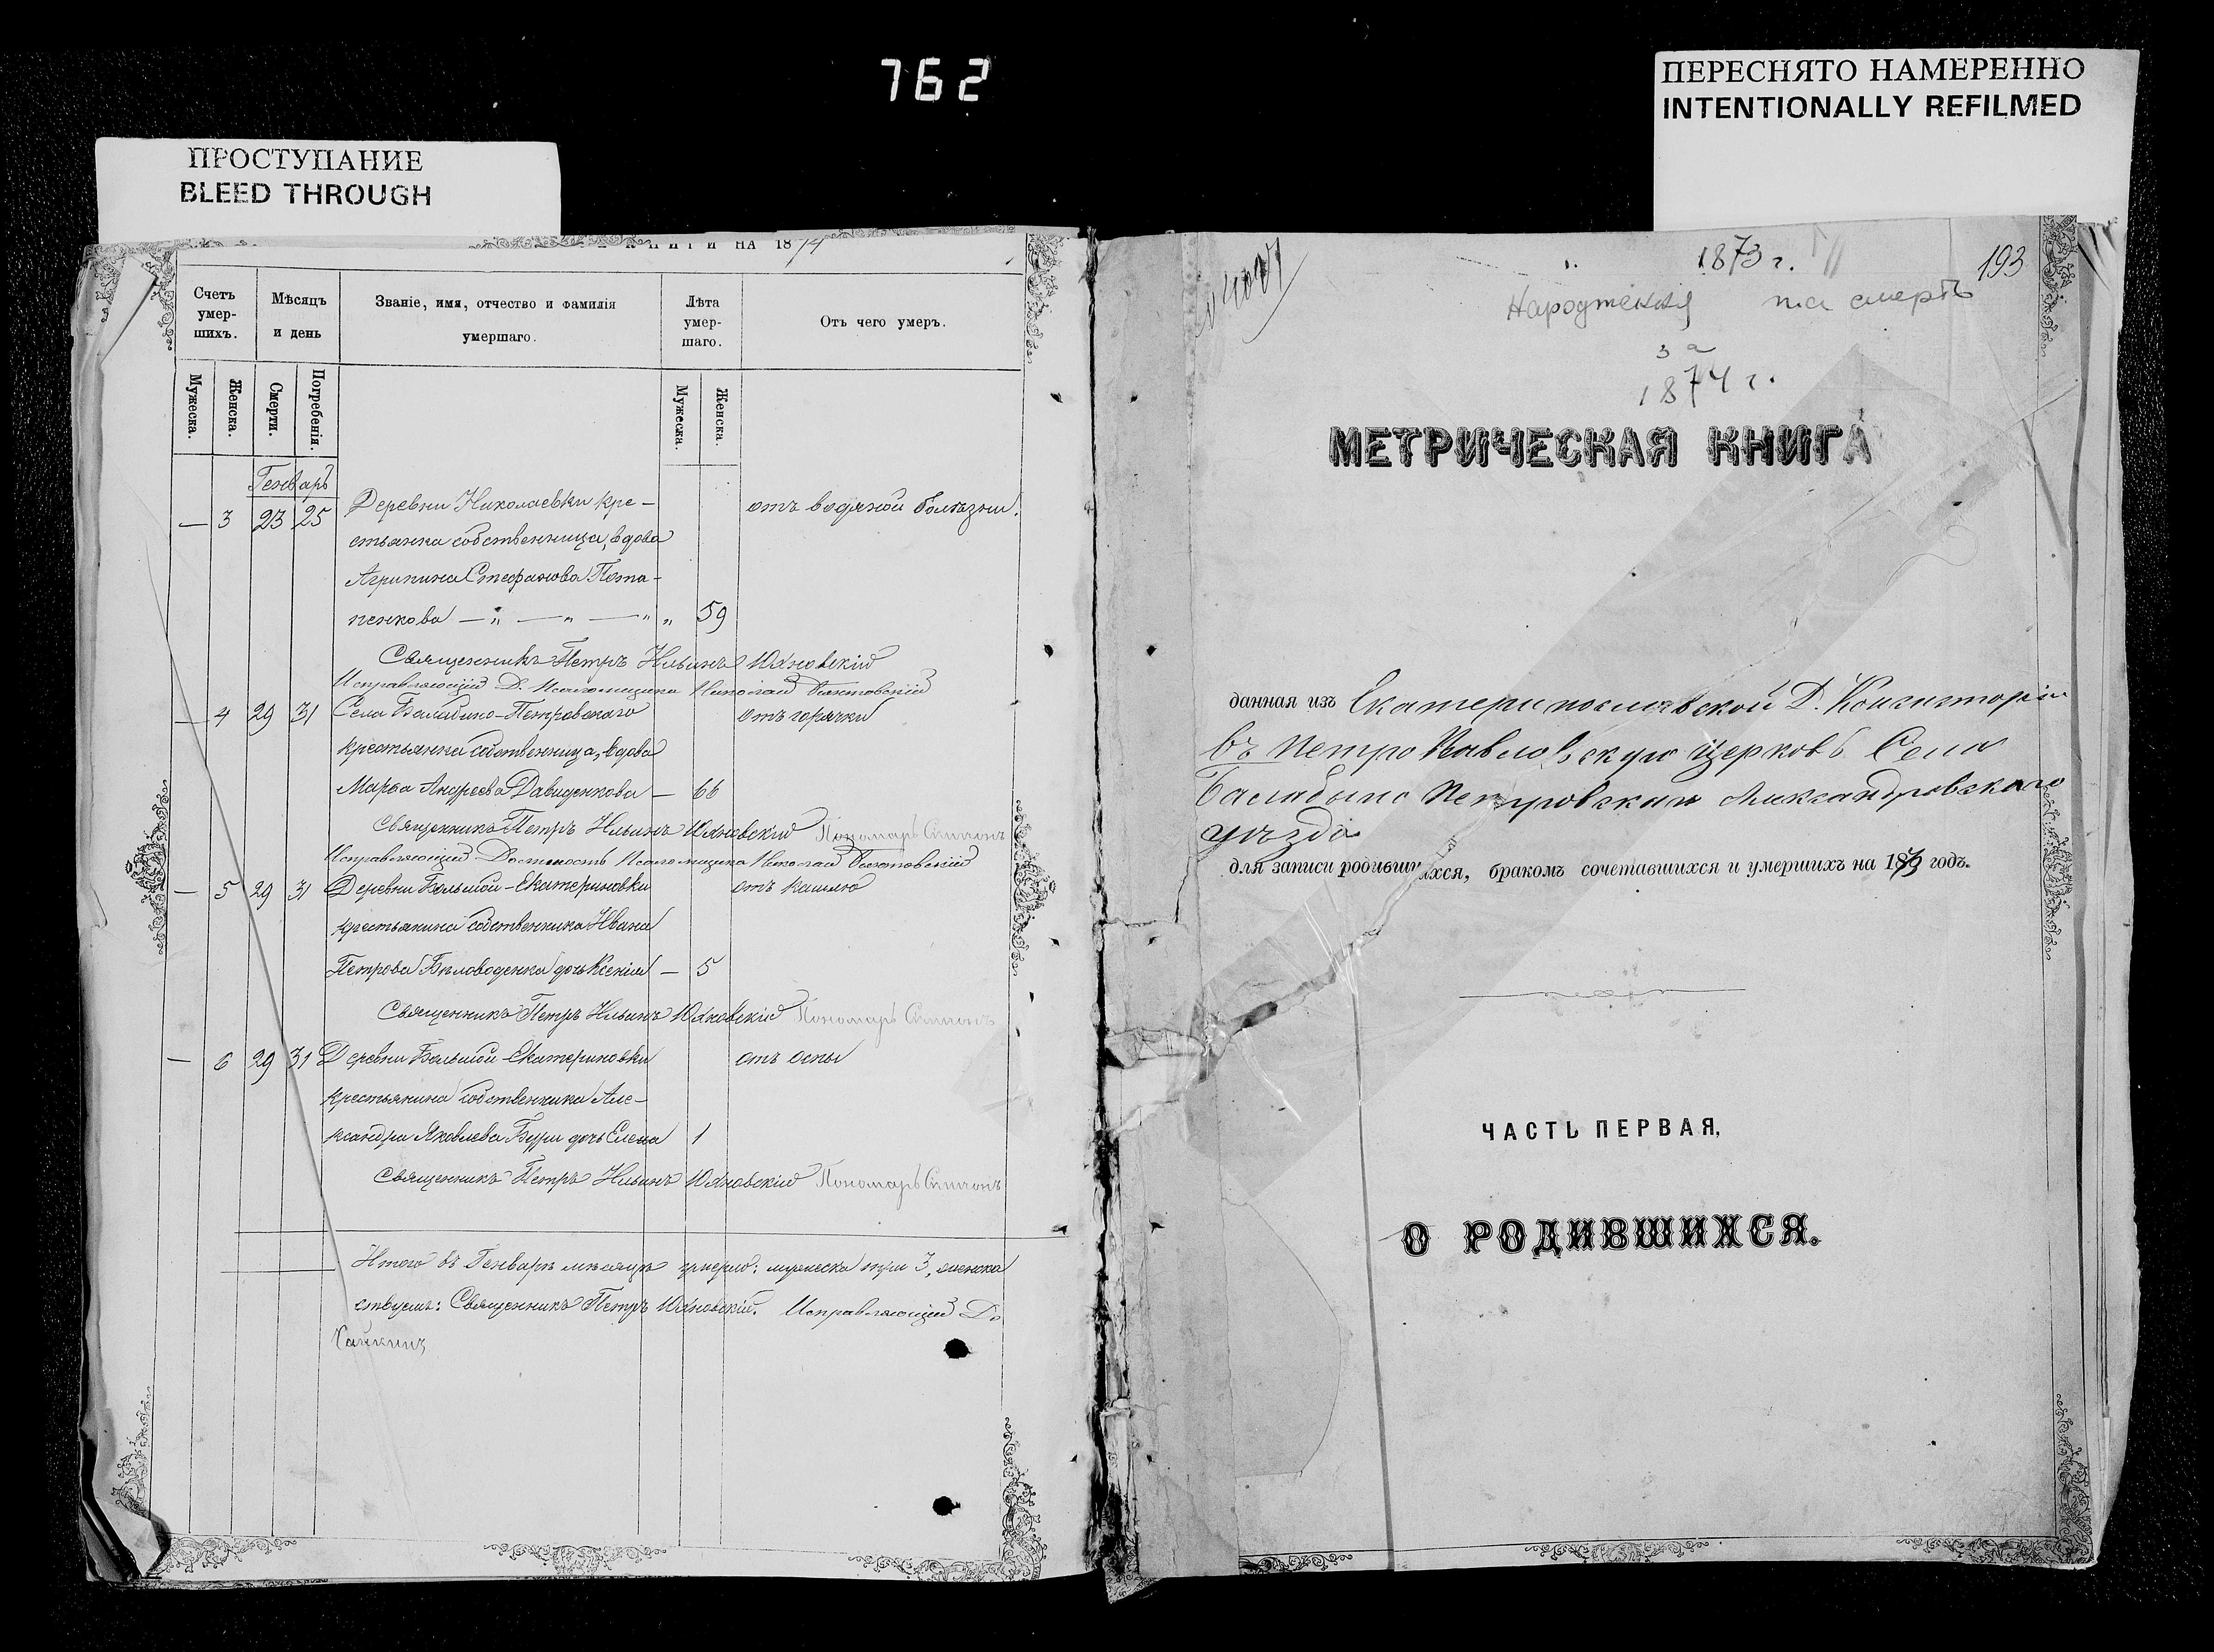 762
ПЕРЕСНЯТО НАМЕРЕННО
INTENTIONALLY REFILMED
ПРОСТУПАНИЕ
BLEED THROUGH
КНИГИ НА 1874
Счетъ умер-шихъ.
Мѣсяцъ и день
Званіе, имя, отчество и фамилія умершаго.
Лѣта умер-шаго.
Отъ чего умеръ.
Мужеска.
Женска.
Смерти.
Погребенія.
Мужеска.
Женска.
Генварь
— 3 23 25 Деревни Николаевки кре- отъ водяной болѣзни.
стьянка собственница, вдова
Агрипина Стефанова Пота-
пенкова — „ — „ — „ „ 59
Священникъ Петръ Ильинъ Юхновскій
Исправляющій Д. Псаломщика Николай
— 4 29 31 Села Балабино-Петровскаго отъ горячки
крестьянка собственница, вдова
Марѳа Андреева Давиденкова — 66
Священникъ Петръ Ильинъ Юхновскій Пономарь Симеонъ
Исправляющій Должность Псаломщика Николай
— 5 29 31 Деревни Большой-Екатериновки отъ кашлю
крестьянина собственника Ивана
Петрова Бѣловоденка дочь Ксенія — 5
Священникъ Петръ Ильинъ Юхновскій Пономарь Симеонъ
— 6 29 31 Деревни Большой-Екатериновки отъ оспы
крестьянина собственника Але-
ксандра Яковлева Бури дочь Елена 1
Священникъ Петръ Ильинъ Юхновскій Пономарь Симеонъ
Итого въ Генварѣ мѣсяцѣ умерло: мужеска три 3, женска
ствуемъ: Священникъ Петръ Юхновскій. Исправляющій До
193
1873 г.
на смерть
за
1874 г.
МЕТРИЧЕСКАЯ КНИГА
данная изъ Екатеринославской Д. Консисторіи
въ Петро Павловскую Церковь Села
Балабыно Петровскаго Александровскаго
уѣзда
для записи родившихся, бракомъ сочетавшихся и умершихъ на 1873 годъ.
ЧАСТЬ ПЕРВАЯ,
О РОДИВШИХСЯ.